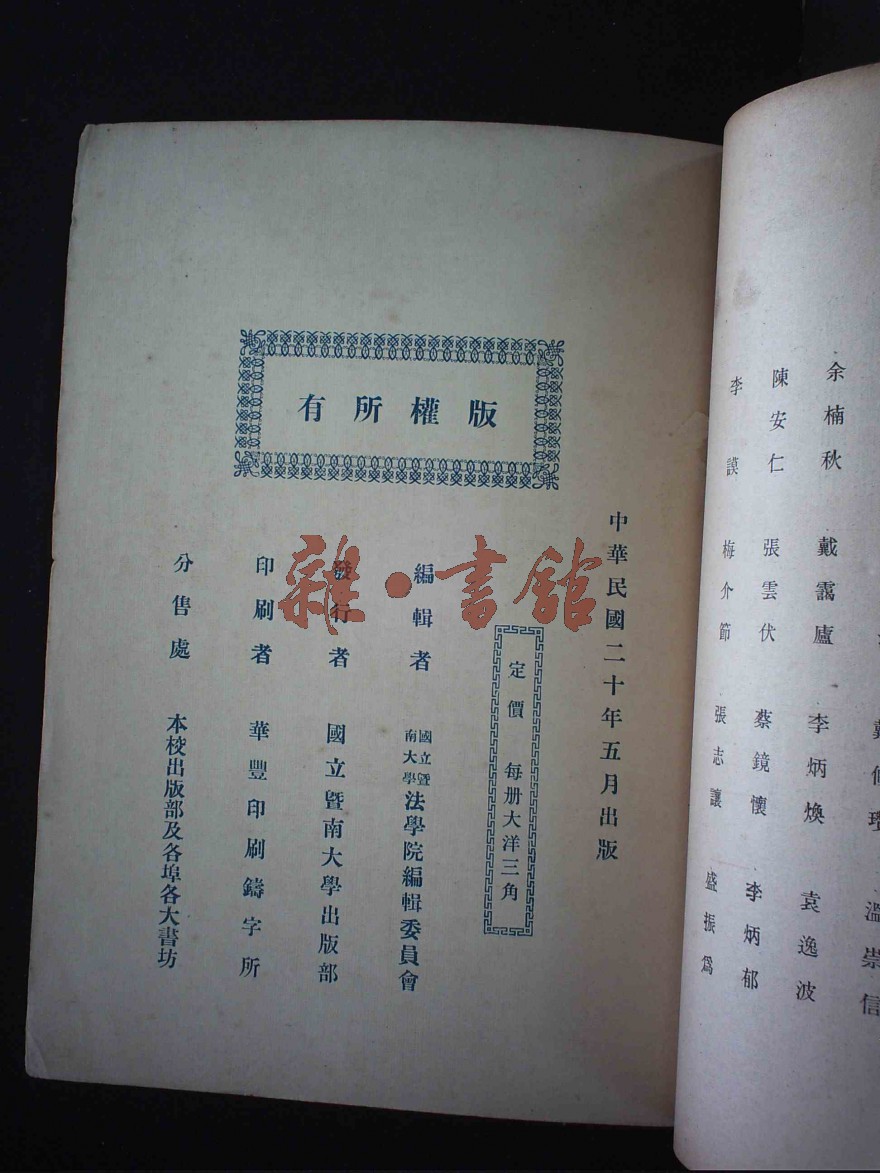 版權所有
中華民國二十年五月出版
定價 每册大洋三角
編輯者 國立暨南大學法學院編輯委員會
發行者 國立暨南大學出版部
印刷者 華豐印刷鑄字所
分售處 本校出版部及各埠各大書坊
雜·書館
溫崇信
余楠秋 戴靄廬 李炳煥 袁逸波
陳安仁 張雲伏 蔡鏡懷 李炳郁
李謨 梅介節 張志讓 盛振爲